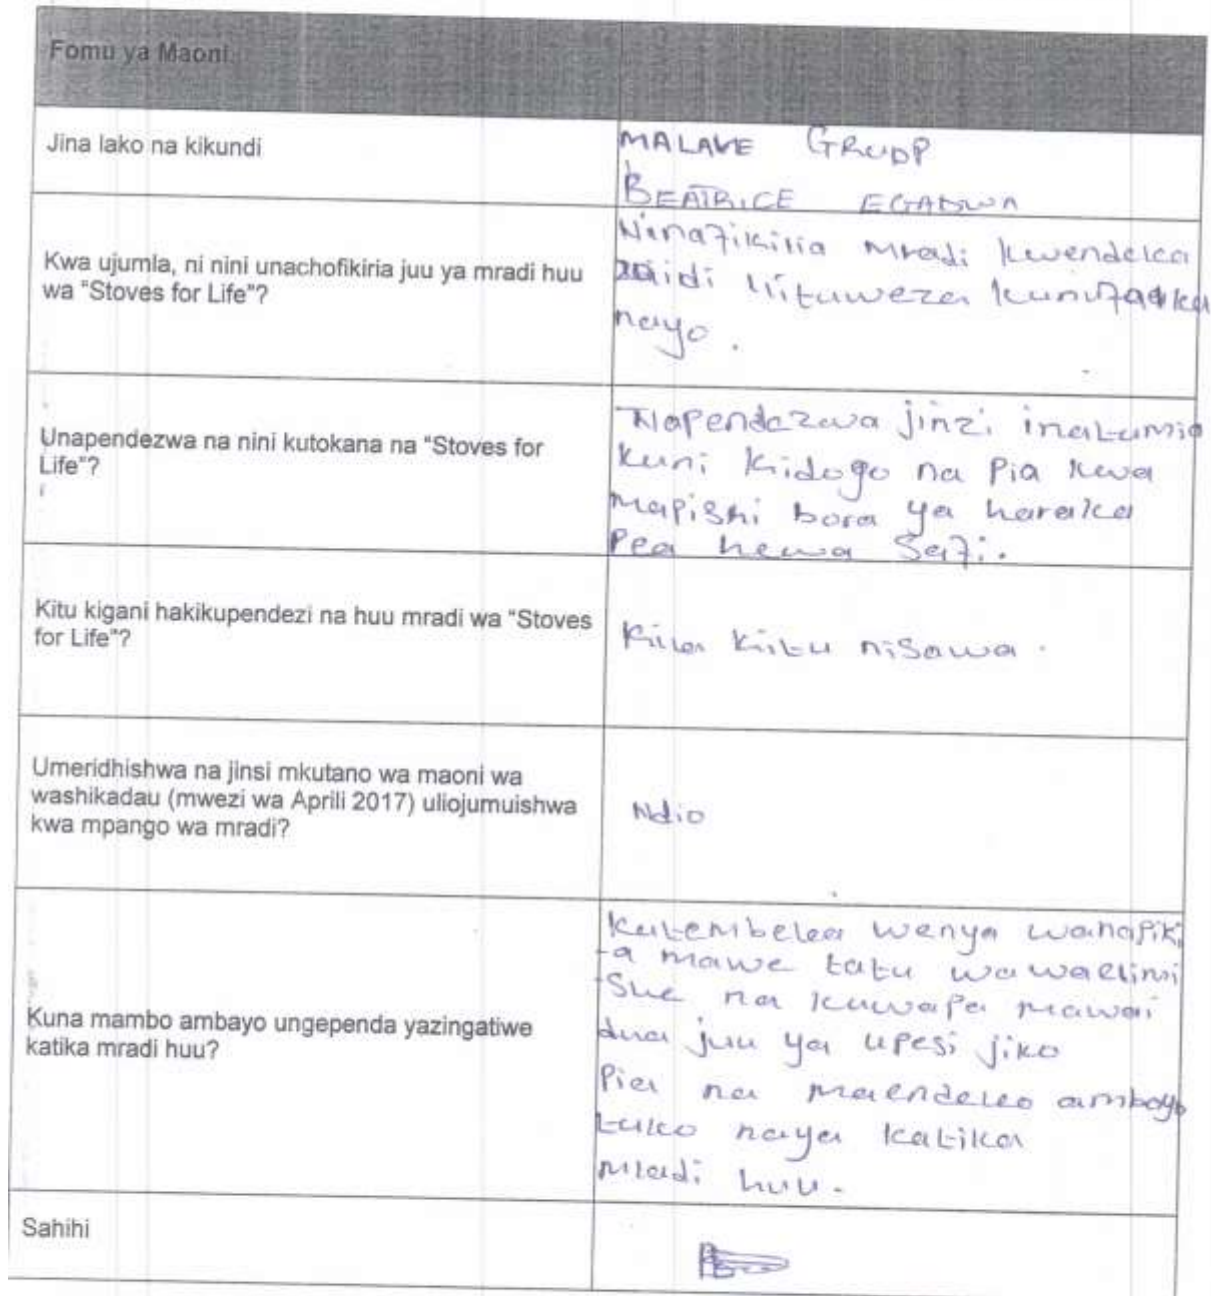 Fomu ya Maoni
Jina lako na kikundi
MALAVE GROUP
BEATRICE EGADWA
Kwa ujumla, ni nini unachofikiria juu ya mradi huu
wa “Stoves for Life”?
Ninafikiria mradi kwendelea
zaidi
nayo.
Unapendezwa na nini kutokana na “Stoves for
Life”?
Napendezwa jinzi inatumia
kuni kidogo na Pia kwa
mapishi bora ya haraka
Pea hewa Safi.
Kitu kigani hakikupendezi na huu mradi wa “Stoves
for Life”?
Kila kitu nisawa.
Umeridhishwa na jinsi mkutano wa maoni wa
washikadau (mwezi wa Aprili 2017) uliojumuishwa
kwa mpango wa mradi?
Ndio
Kuna mambo ambayo ungependa yazingatiwe
katika mradi huu?
Kutembelea wenya wanapiki
-a mawe tatu wawaelimi
-She na kuwapa mawai
dha juu ya upesi jiko
Pia na maendeleo ambayo
tuko naya katika
mradi huu.
Sahihi